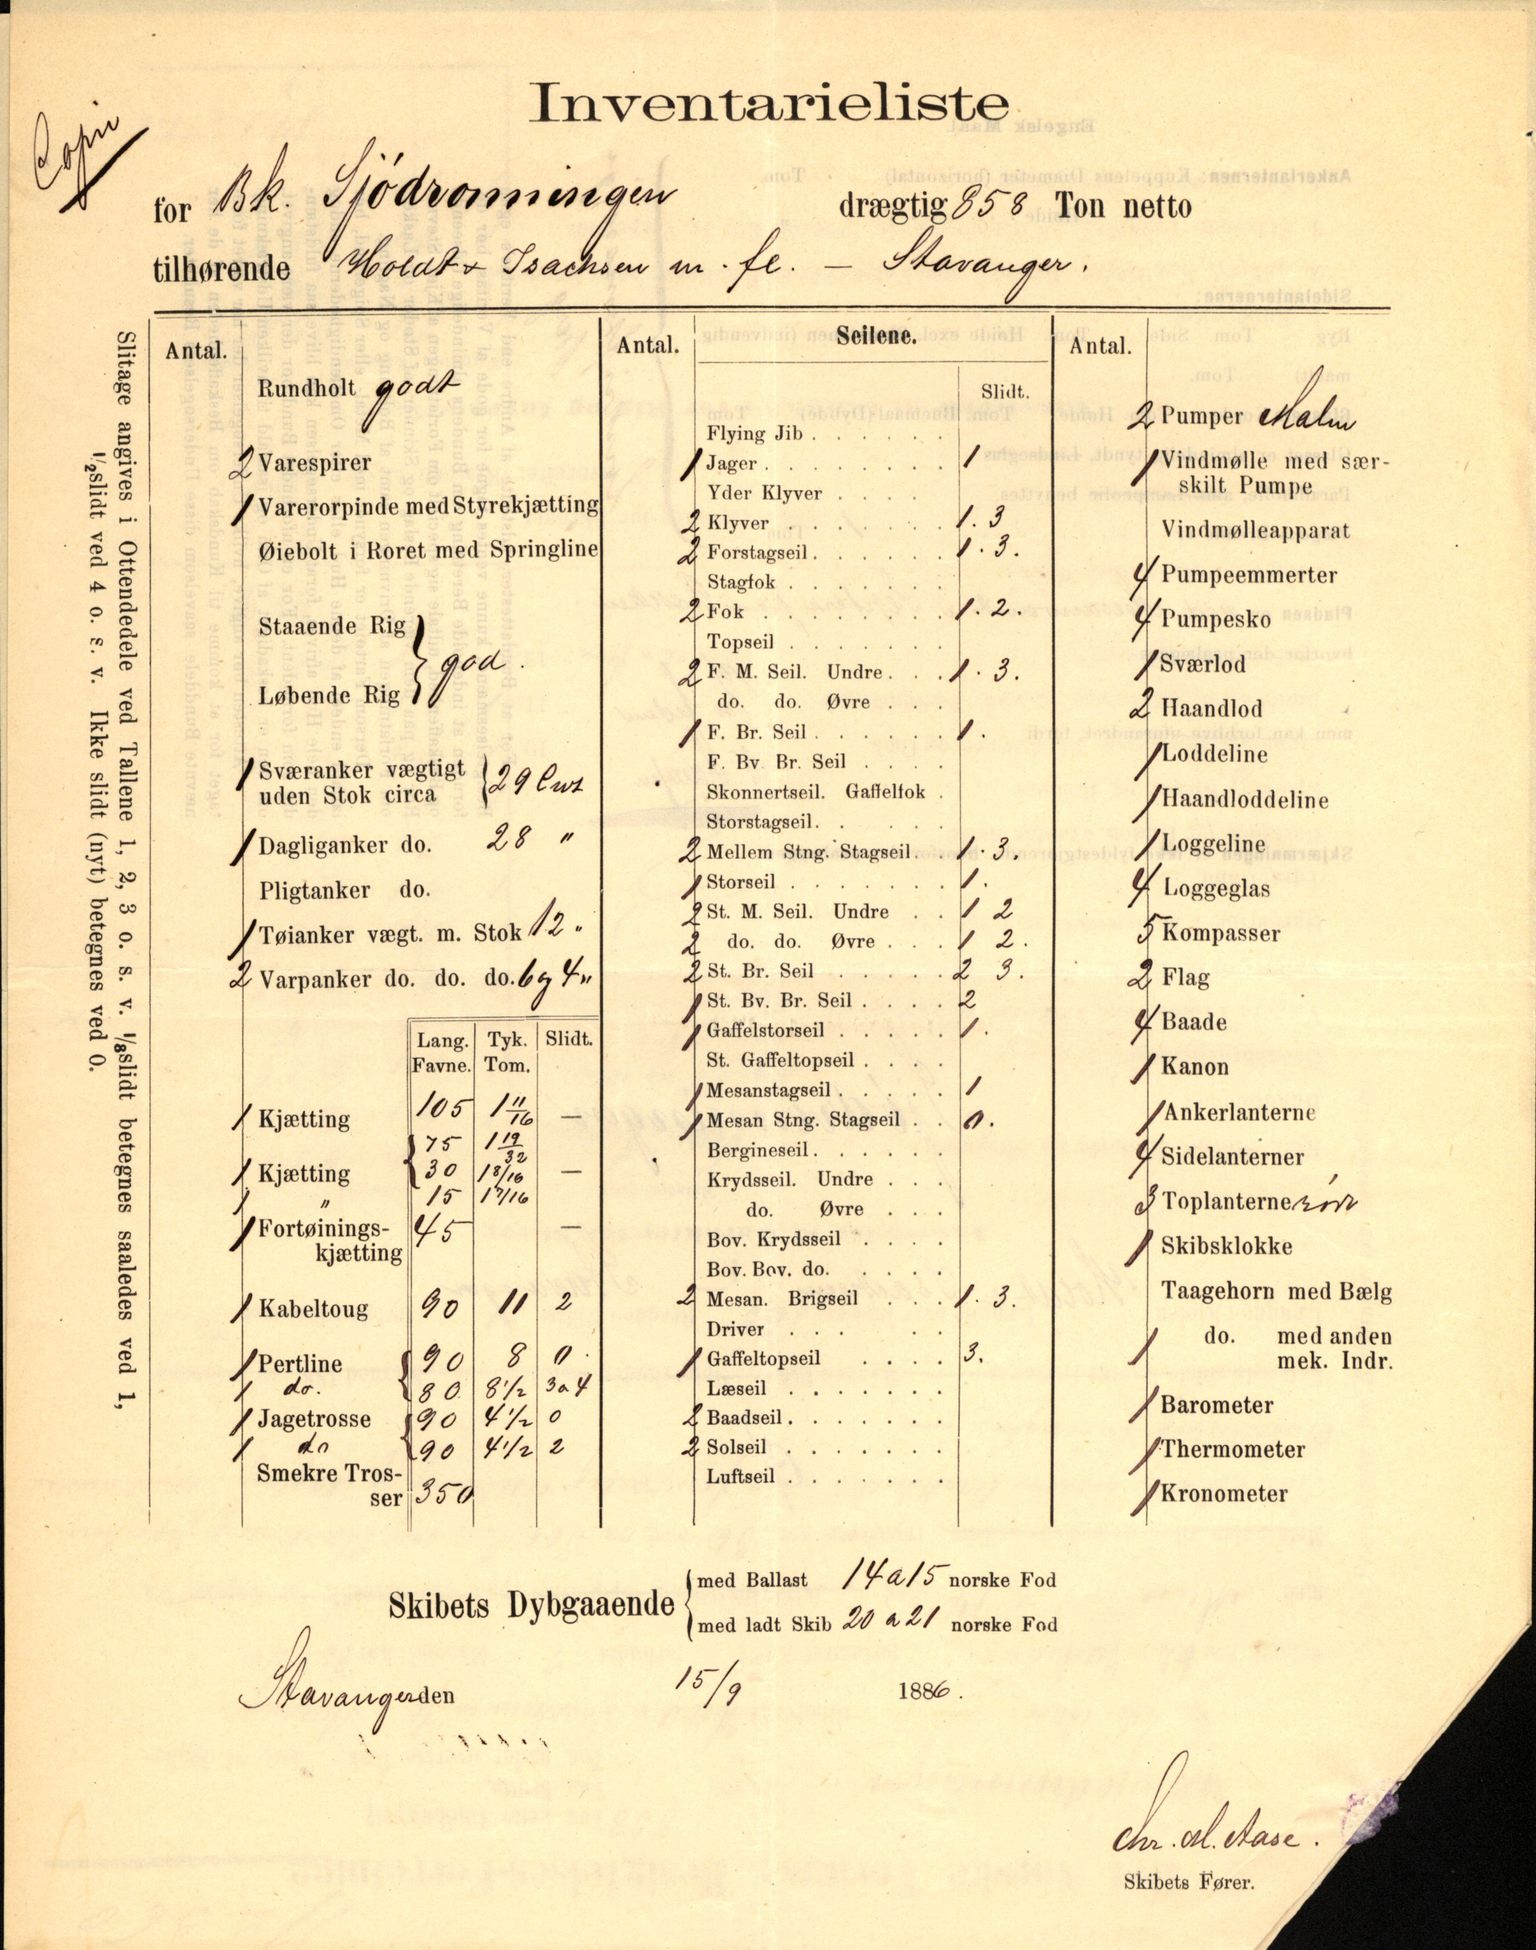 Copi
Inventarieliste
for Bk. Sjödronningen drægtig 858 Ton netto
tilhørende Holdt & Isachsen m. fl. — Stavanger.
Slitage angives i Ottendedele ved Tallene 1, 2, 3 o. s. v. 1/8 slidt betegnes saaledes ved 1,
1/2 slidt ved 4 o. s. v. Ikke slidt (nyt) betegnes ved 0.
Antal.
Rundholt godt
2 Varespirer
1 Varerorpinde med Styrekjætting
Øiebolt i Roret med Springline
Staaende Rig
Løbende Rig } god.
1 Sværanker vægtigt
uden Stok circa } 29 Cwt
1 Dagliganker do. 28 "
Pligtanker do.
1 Tøianker vægt. m. Stok 12 "
2 Varpanker do. do. do. 6 og 4 "
Lang. Tyk. Slidt.
Favne. Tom.
1 Kjætting 105 1 11/16 —
75 1 19/32
1 Kjætting 30 1 8/16 —
1 " 15 1 7/16
1 Fortøinings-
kjætting 45 —
1 Kabeltoug 90 11 2
1 Pertline 90 8 0
1 do. 80 8 1/2 3 a 4
1 Jagetrosse 90 4 1/2 0
1 do 90 4 1/2 2
Smekre Tros-
ser 350
Antal. Seilene.
Slidt.
Flying Jib . . . . .
1 Jager . . . . . . . 1
Yder Klyver . . . .
2 Klyver . . . . . . . 1. 3
2 Forstagseil . . . . . . 1. 3.
Stagfok . . . . . . .
2 Fok . . . . . . . . 1. 2.
Topseil . . . . . . .
2 F. M. Seil. Undre . . . 1. 3.
do. do. Øvre . . .
1 F. Br. Seil . . . . . . 1.
F. Bv Br. Seil . . . .
Skonnertseil. Gaffelfok .
Storstagseil. . . . .
2 Mellem Stng. Stagseil. . 1. 3.
1 Storseil . . . . . . . 1.
2 St. M. Seil. Undre . . 1 2
2 do. do. Øvre . . . 1 2.
2 St. Br. Seil . . . . . 2 3.
1 St. Bv. Br. Seil . . . . 2
1 Gaffelstorseil . . . . . 1.
St. Gaffeltopseil . . . .
1 Mesanstagseil . . . . . 1
1 Mesan Stng. Stagseil . . 0.
Bergineseil. . . . . .
Krydsseil. Undre . . .
do. Øvre . . .
Bov. Krydsseil . . . .
Bov. Bov. do. . . . .
2 Mesan. Brigseil . . . 1. 3.
Driver . . . . .
1 Gaffeltopseil . . . . 3.
Læseil . . . . . . .
2 Baadseil . . . . . .
2 Solseil . . . . . . .
Luftseil . . . . . . .
Antal.
2 Pumper Malm
1 Vindmølle med sær-
skilt Pumpe
Vindmølleapparat
4 Pumpeemmerter
4 Pumpesko
1 Sværlod
2 Haandlod
1 Loddeline
1 Haandloddeline
1 Loggeline
4 Loggeglas
5 Kompasser
2 Flag
4 Baade
1 Kanon
1 Ankerlanterne
4 Sidelanterner
3 Toplanterne rödt
1 Skibsklokke
Taagehorn med Bælg
1 do. med anden
mek. Indr.
1 Barometer
1 Thermometer
1 Kronometer
Skibets Dybgaaende { med Ballast 14 a 15 norske Fod
med ladt Skib 20 a 21 norske Fod
Stavanger den 15/9 1886.
Chr. M. Aase.
Skibets Fører.